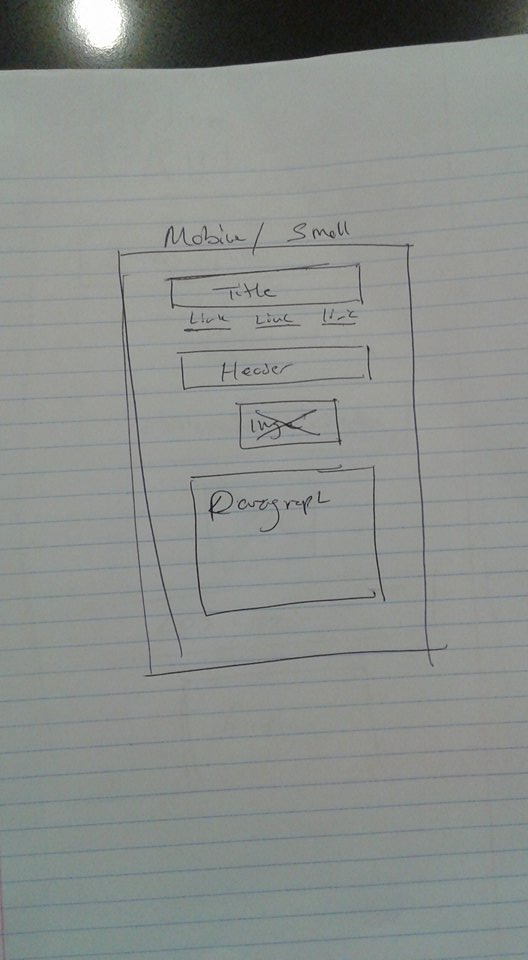 Mobile/ Small
Title
Link Link Link
Header
Img
Paragraph